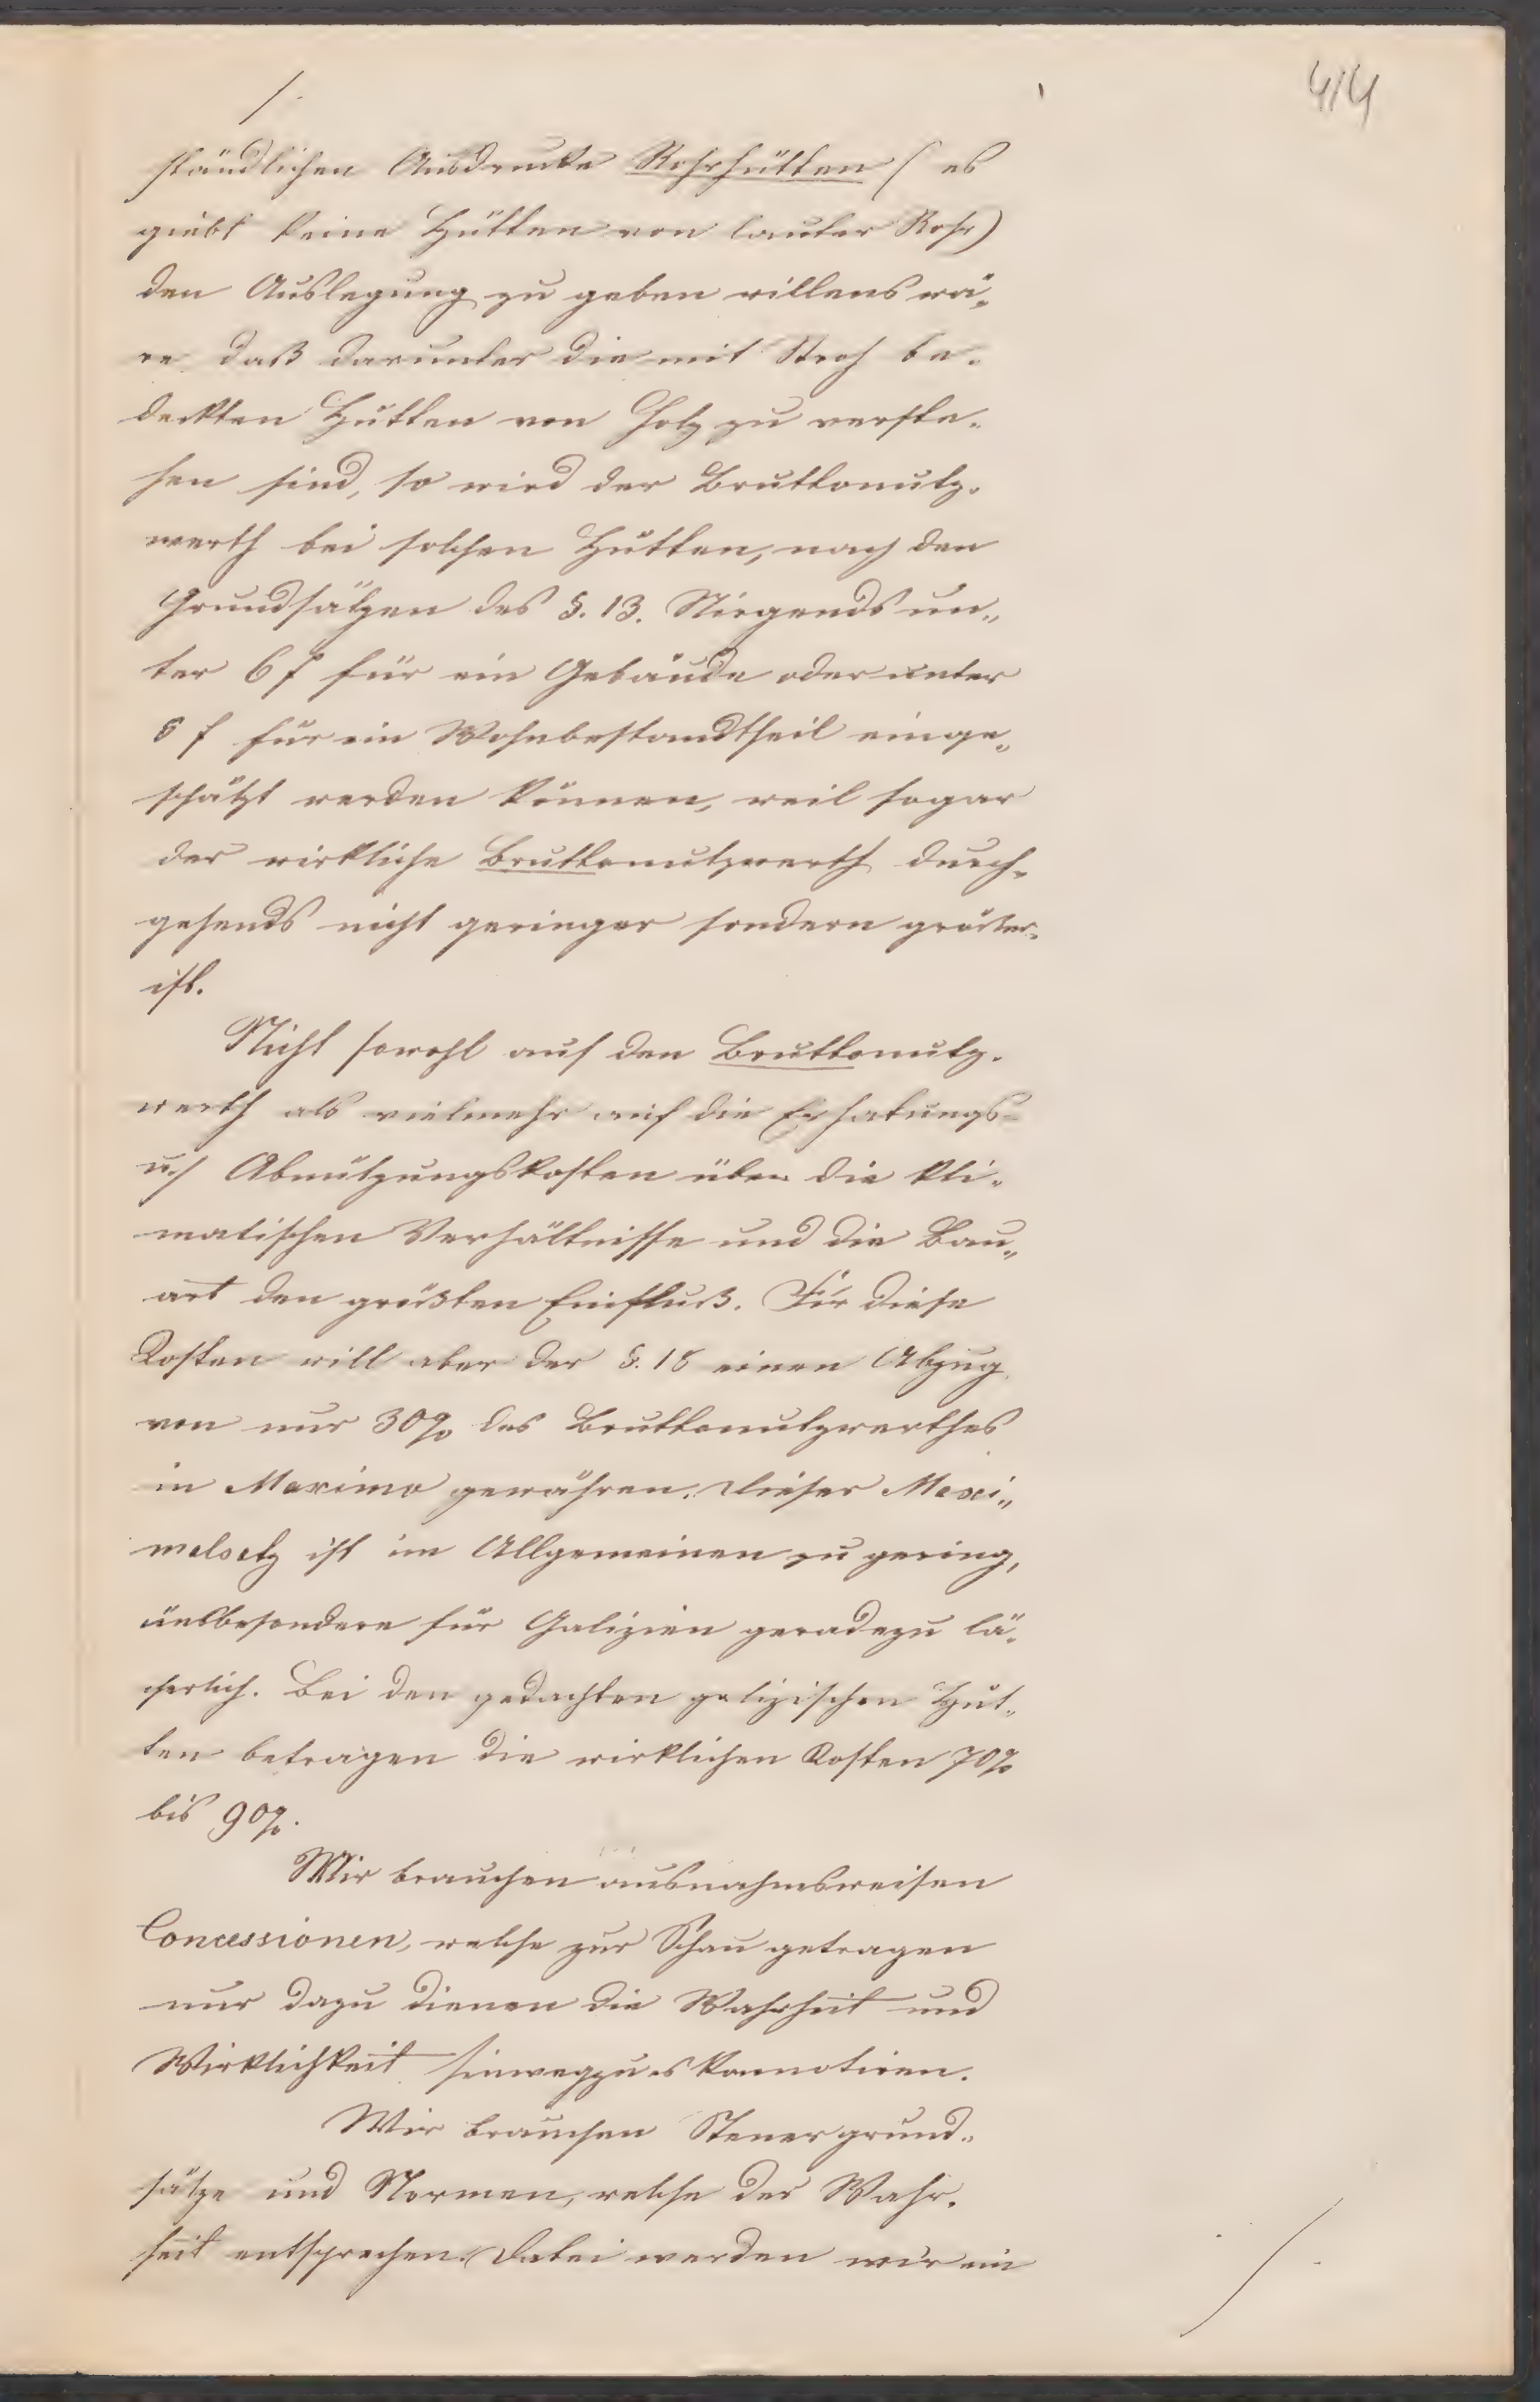 414
ständlichen Ausdrucke Rohrhütten (es
giebt keine Hütten von lauter Rohr)
den Auslegung zu geben willens wä„
re daß darunter die mit Stroh be„
deckten Hütten von Holz zu verste„
hen sind, so wird der Bruttonutz„
werth bei solchen Hütten, nach den
Grundsätzen des §. 13. Nirgends un„
ter 6 f für ein Gebäude oder unter
5 f für ein Wohnbestandtheil einge„
schätzt werden können, weil sogar
der wirkliche Bruttonutzwerth durch„
gehends nicht geringer sondern größer
ist.
Nicht sowohl auf den Bruttonutz„
werth als vielmehr auf die Erhaltungs-
u/ Abnützungskosten üben die kli„
matischen Verhältnisse und die Bau„
art den größten Einfluß. Für diese
Kosten will aber der §. 18 einen Abzug
von nur 30% des Bruttonutzwerthes
in Maximo gewähren. Dieser Maxi„
malsatz ist im Allgemeinen zu gering,
insbesondere für Galizien geradezu lä„
cherlich. Bei den gedachten galizischen Hüt„
ten betragen die wirklichen Kosten 70%
bis 90%.
Wir brauchen ausnahmsweisen
Concessionen, welche zur Schau getragen
nur dazu dienen die Wahrheit und
Wirklichkeit hinwegzueskamotiren.
Wir brauchen Steuergrund„
sätze und Normen, welche der Wahr„
heit entsprechen. Dabei werden wir ein